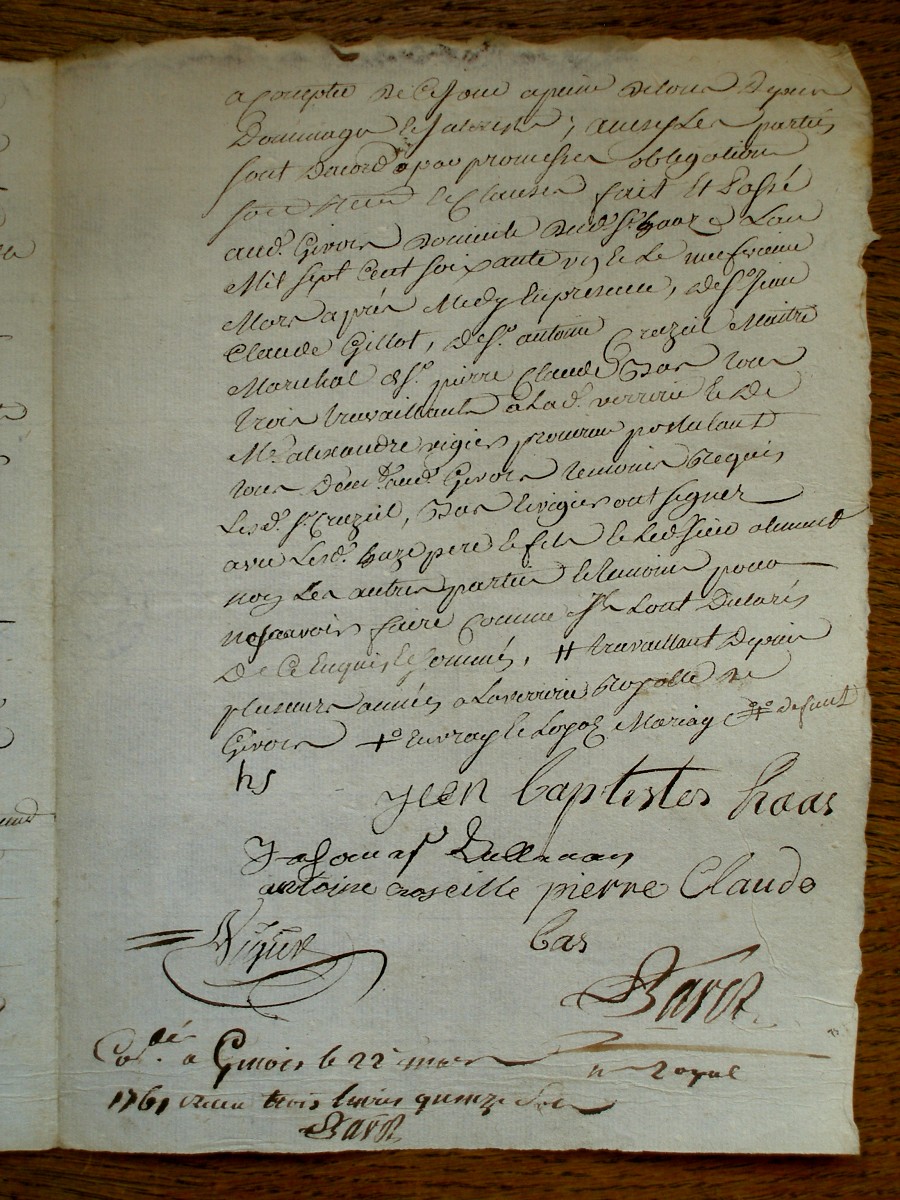 a compter de ce jour a peine de tous depens
Dommages & Interests ; ainsy les parties
sont Dacord par promesses obligations
soum. & Clauses fait Et Passé
aud. Givors Domicile dud. Sr. haaz Lan
Mil sept Cent Soixante un & Le neufvieme
Mars après Midy En presence, de Sr. Jean
Claude Gillot, de Sr. antoine Crozeil Maitre
Marechal & Sr. pierre Claude Bas tous
trois travaillants a Lad. verrerie & de
Me. alexandre vigier procureur postulant
tous dem. aud. Givors temoins Requis
Lesd. Sr. Crozeil, Bas & vigier ont signez
avec Lesd. haze pere & fils & Led Sieur
non Les autres parties & temoins pour
ne scavoir faire Comme Ils Lont Declarés
De Ce Enquis & sommés, # travaillant Depuis
plusieurs années a La verrerie Royalle de
Givors Mariag defunt
hs
jean baptistes haas
antoine croseille pierre Claude
bas
Viguer
Barot
Col. a Givors le 22 mars
n Royal
1761 Receu trois livres quinze sols
Barot